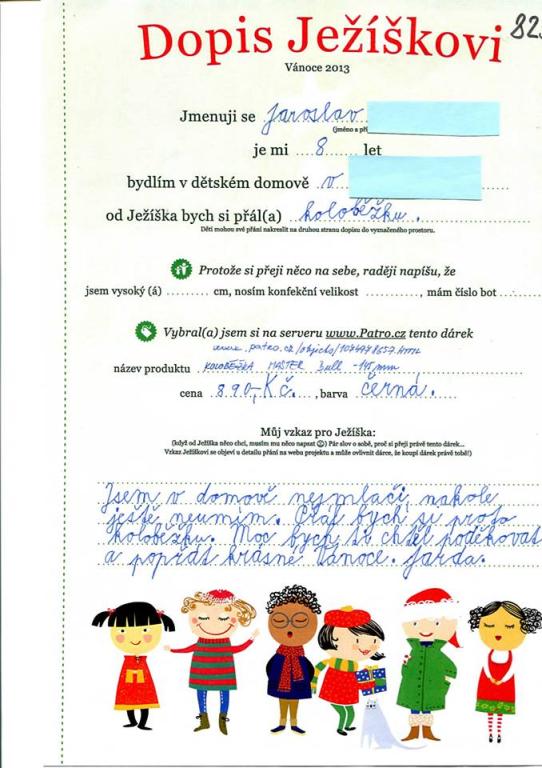 82
Dopis Ježíškovi
Vánoce 2013
Jmenuji se Jaroslav
(jméno a pří
je mi 8 let
bydlím v dětském domově v
od Ježíška bych si přál(a) koloběžku.
Děti mohou své přání nakreslit na druhou stranu dopisu do vyznačeného prostoru.
Protože si přeji něco na sebe, raději napíšu, že
jsem vysoký (á) ......... cm, nosím konfekční velikost ........., mám číslo bot .........
Vybral(a) jsem si na serveru www.Patro.cz tento dárek
název produktu KOLOBĚŽKA MASTER Bull - 145 mm
cena 890,-Kč. , barva černá.
Můj vzkaz pro Ježíška:
(když od Ježíška něco chci, musím mu něco napsat ☺) Pár slov o sobě, proč si přeji právě tento dárek...
Vzkaz Ježíškovi se objeví u detailu přání na webu projektu a může ovlivnit dárce, že koupí dárek právě tobě!)
Jsem v domově nejmlačí, nakole
ještě neumím. Přál bych si proto
koloběžku. Moc bych ti chtěl poděkovat
a popřát krásné Vánoce. Jarda.